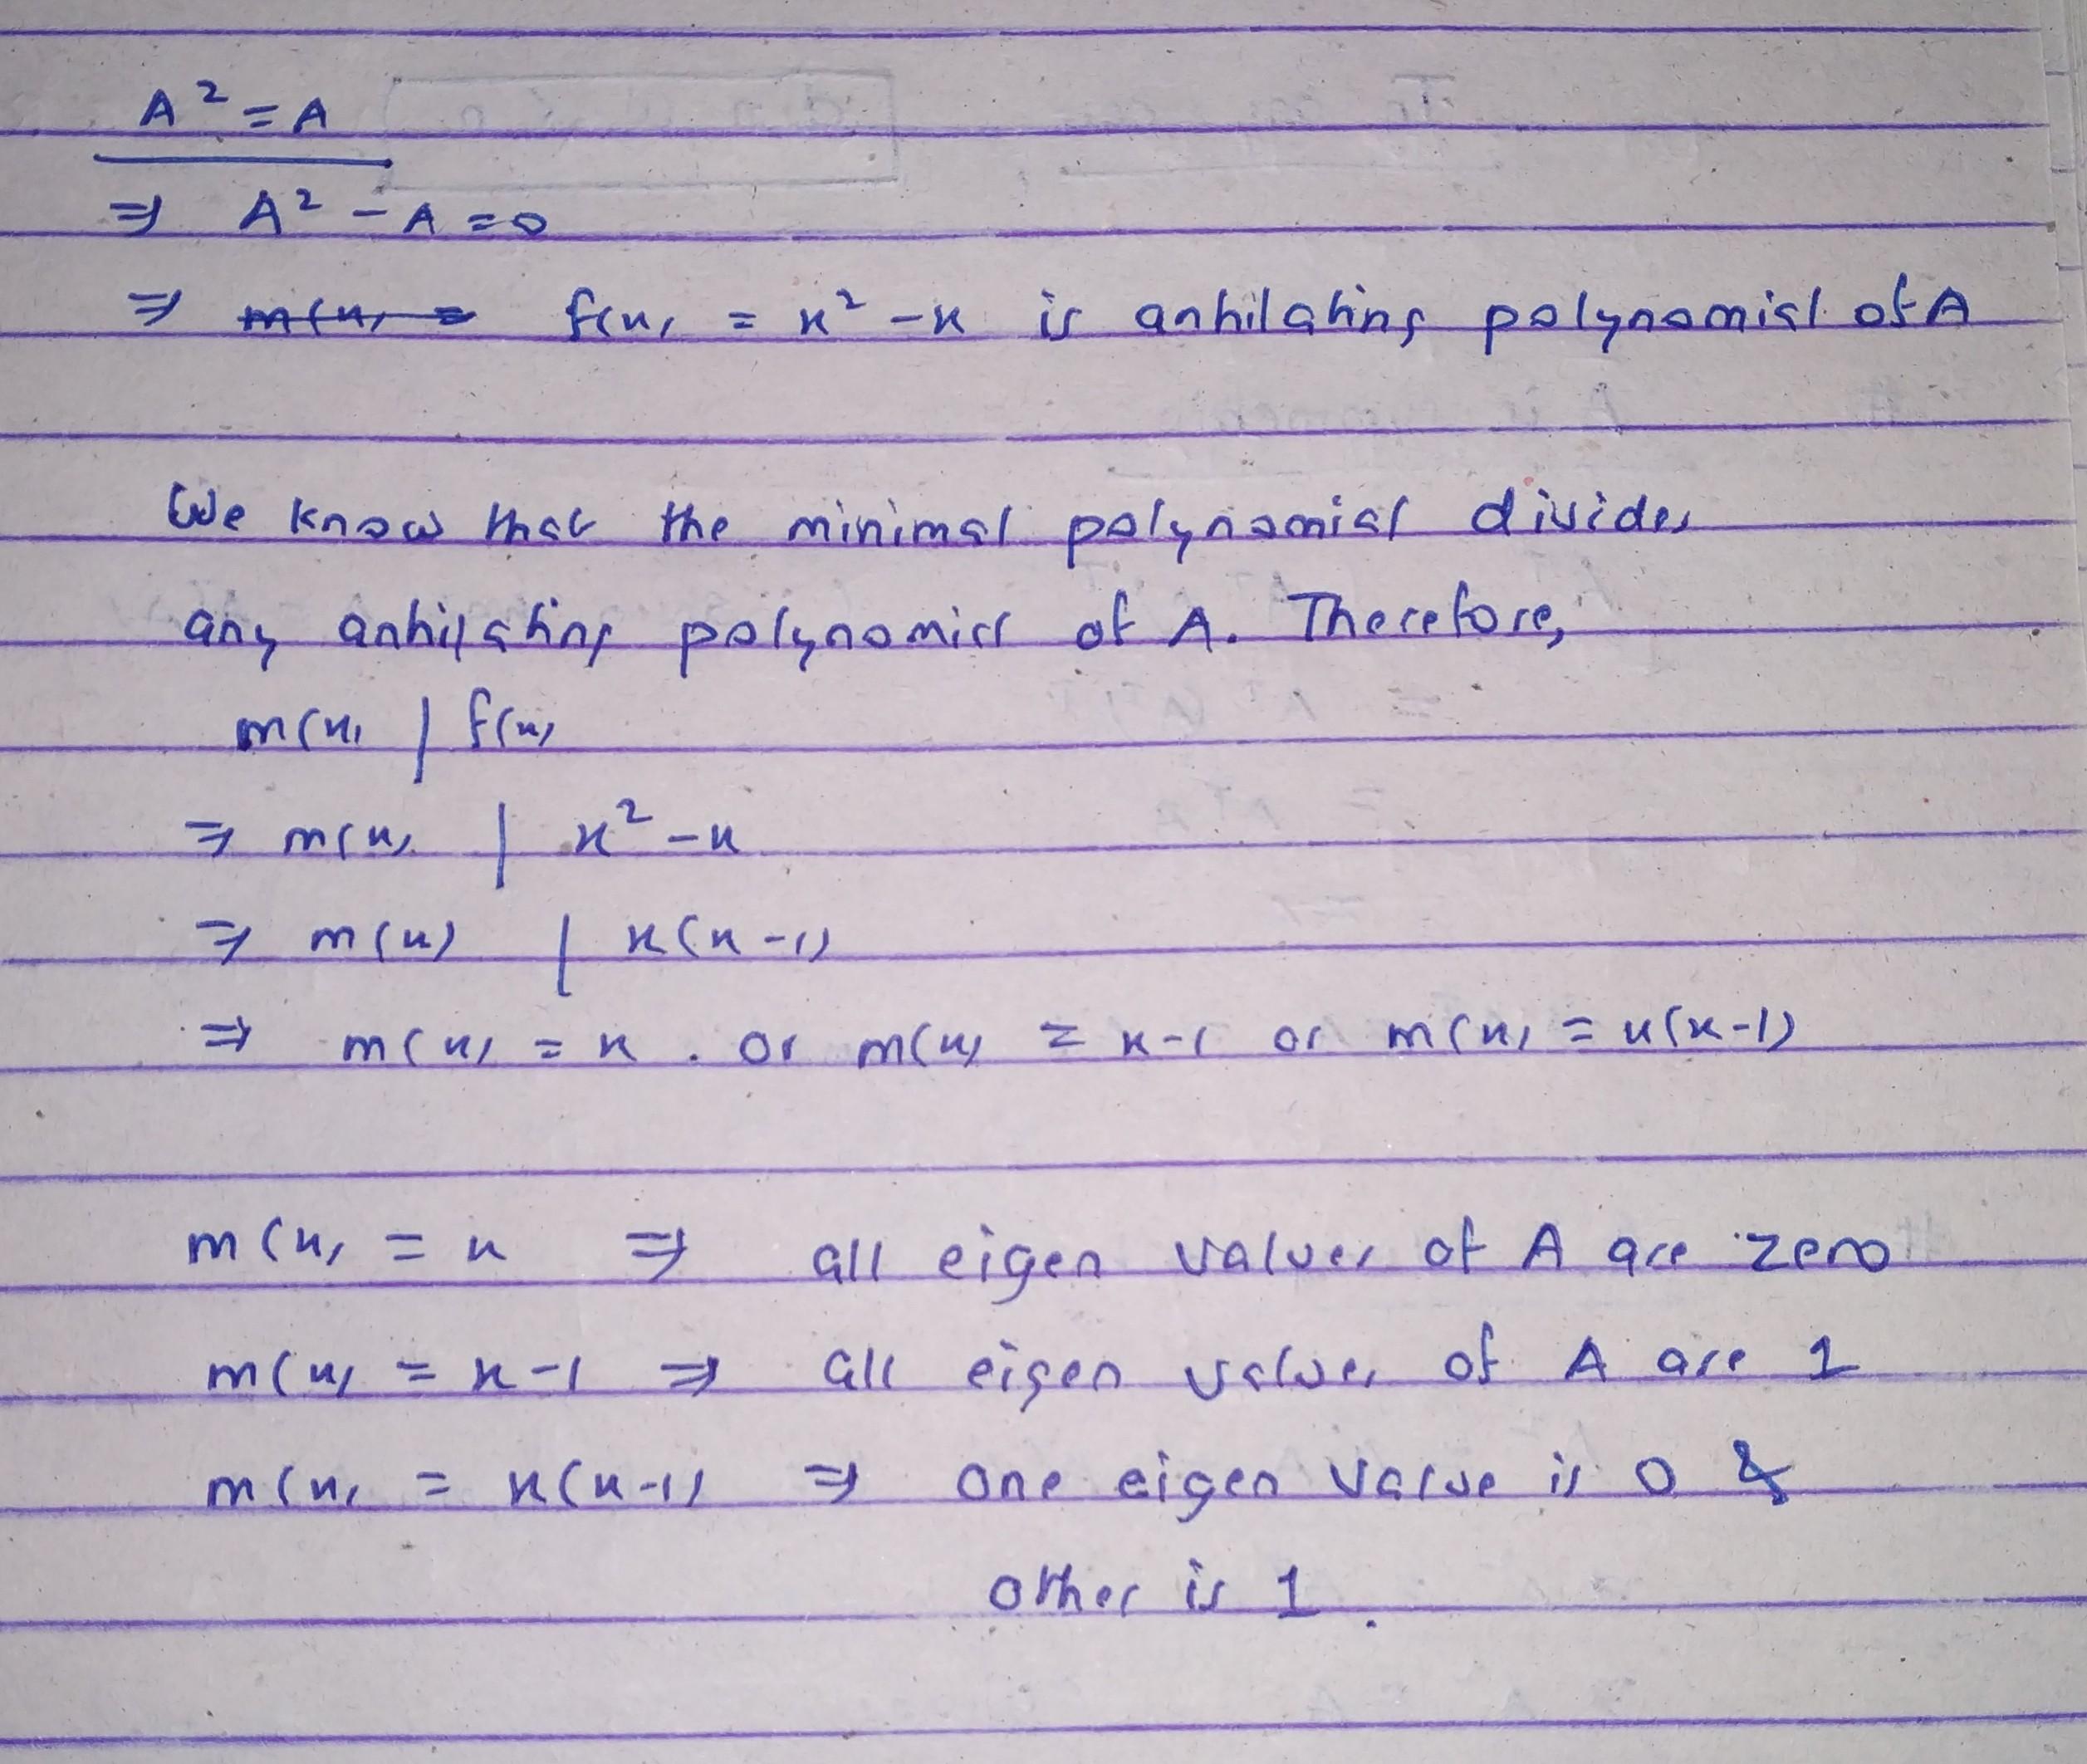 A² = A
⇒ A² - A = 0
⇒ m(x) = f(x) = x² - x is anhilating polynomial of A
We know that the minimal polynomial divides
any anhilating polynomial of A. Therefore,
m(x) | f(x)
⇒ m(x) | x² - x
⇒ m(x) | x(x-1)
⇒ m(x) = x . or m(x) = x-1 or m(x) = x(x-1)
m(x) = x ⇒ all eigen values of A are zero
m(x) = x-1 ⇒ all eigen values of A are 1
m(x) = x(x-1) ⇒ one eigen value is 0 &
other is 1.